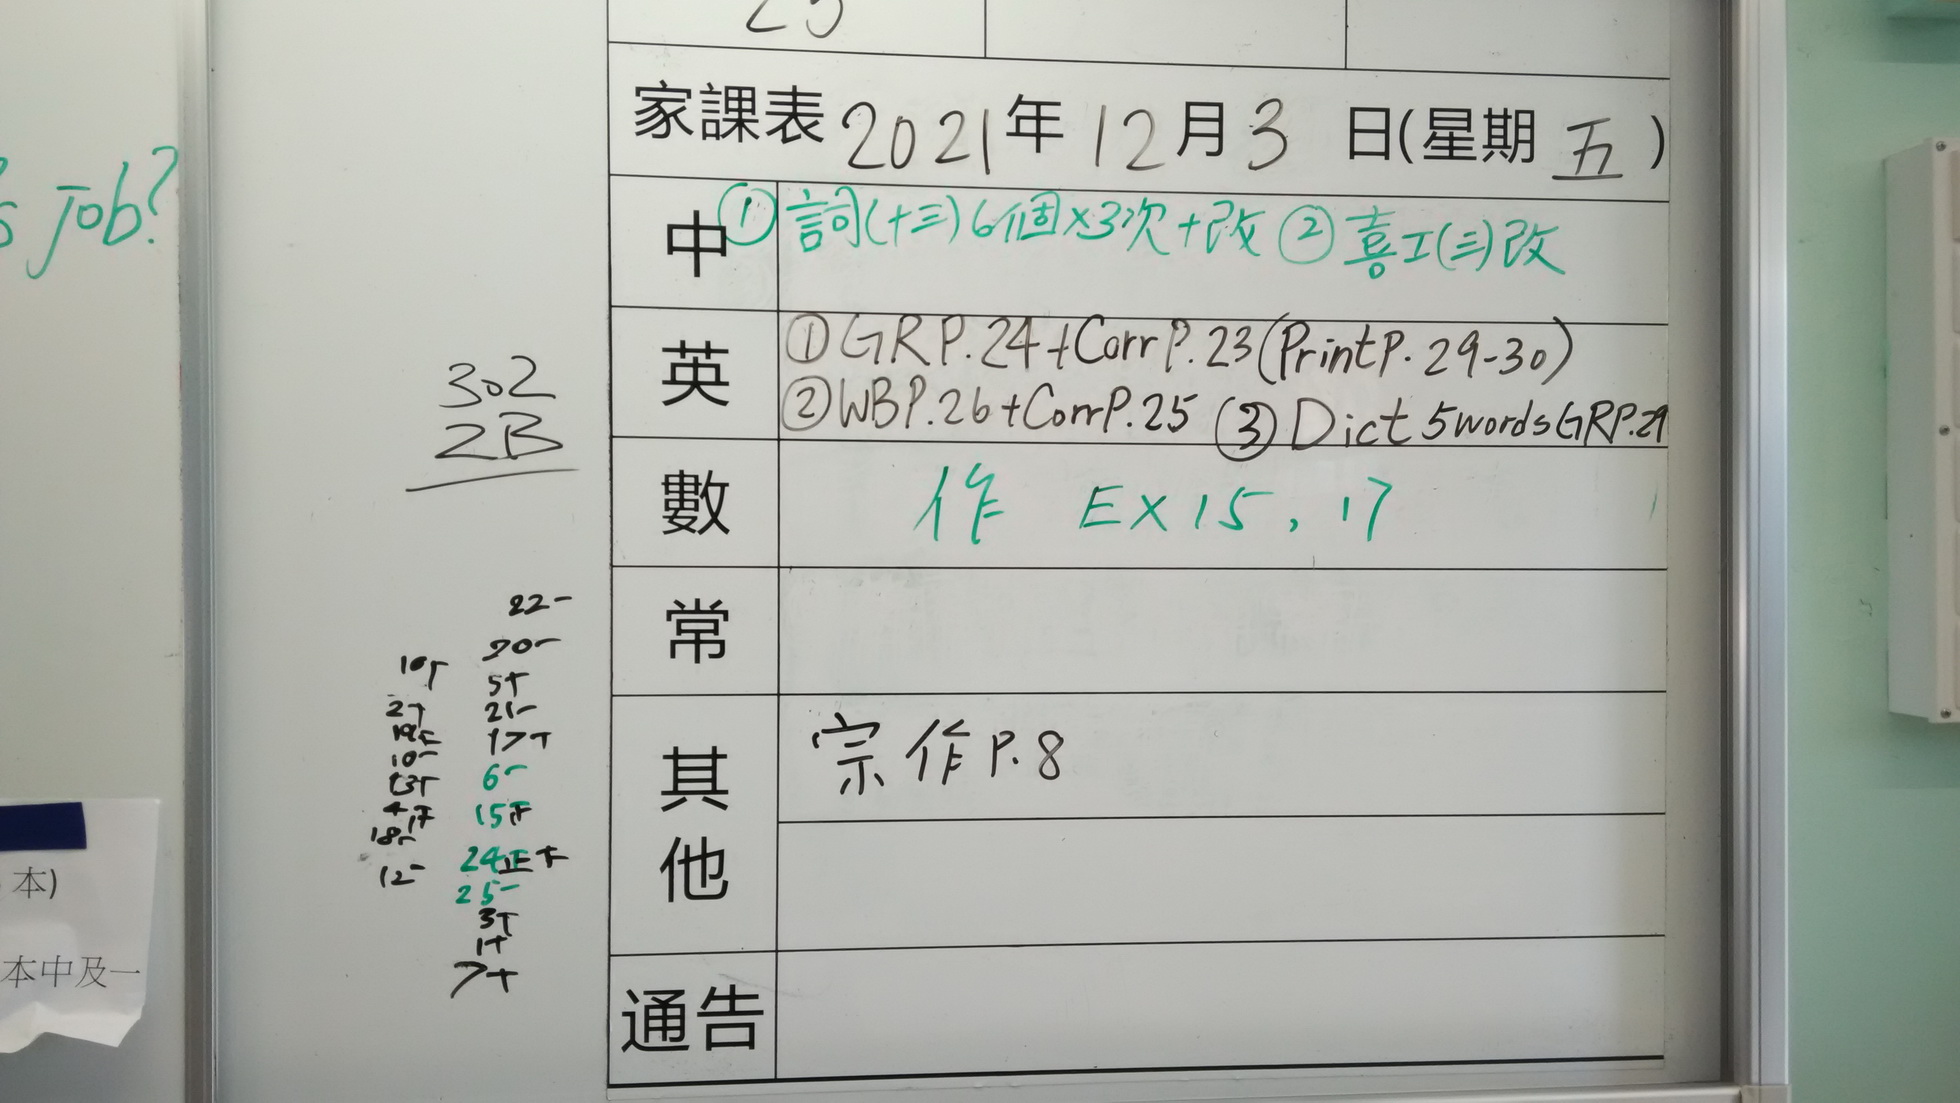 25
家課表 2021年 12月 3 日(星期 五 )
中 ① 詞(十三)6個×3次+改 ② 喜工(三)改
英 ① GR P.24+Corr P.23(Print P.29-30)
② WB P.26+Corr P.25 ③ Dict 5words GRP.29
數 作 EX 15, 17
常
其他 宗 作 P.8
通告
job?
302
2B
22
20
5
21
17
6
15
24正
25
3
1
7
2
10
13
4
18
12
本)
本中及一